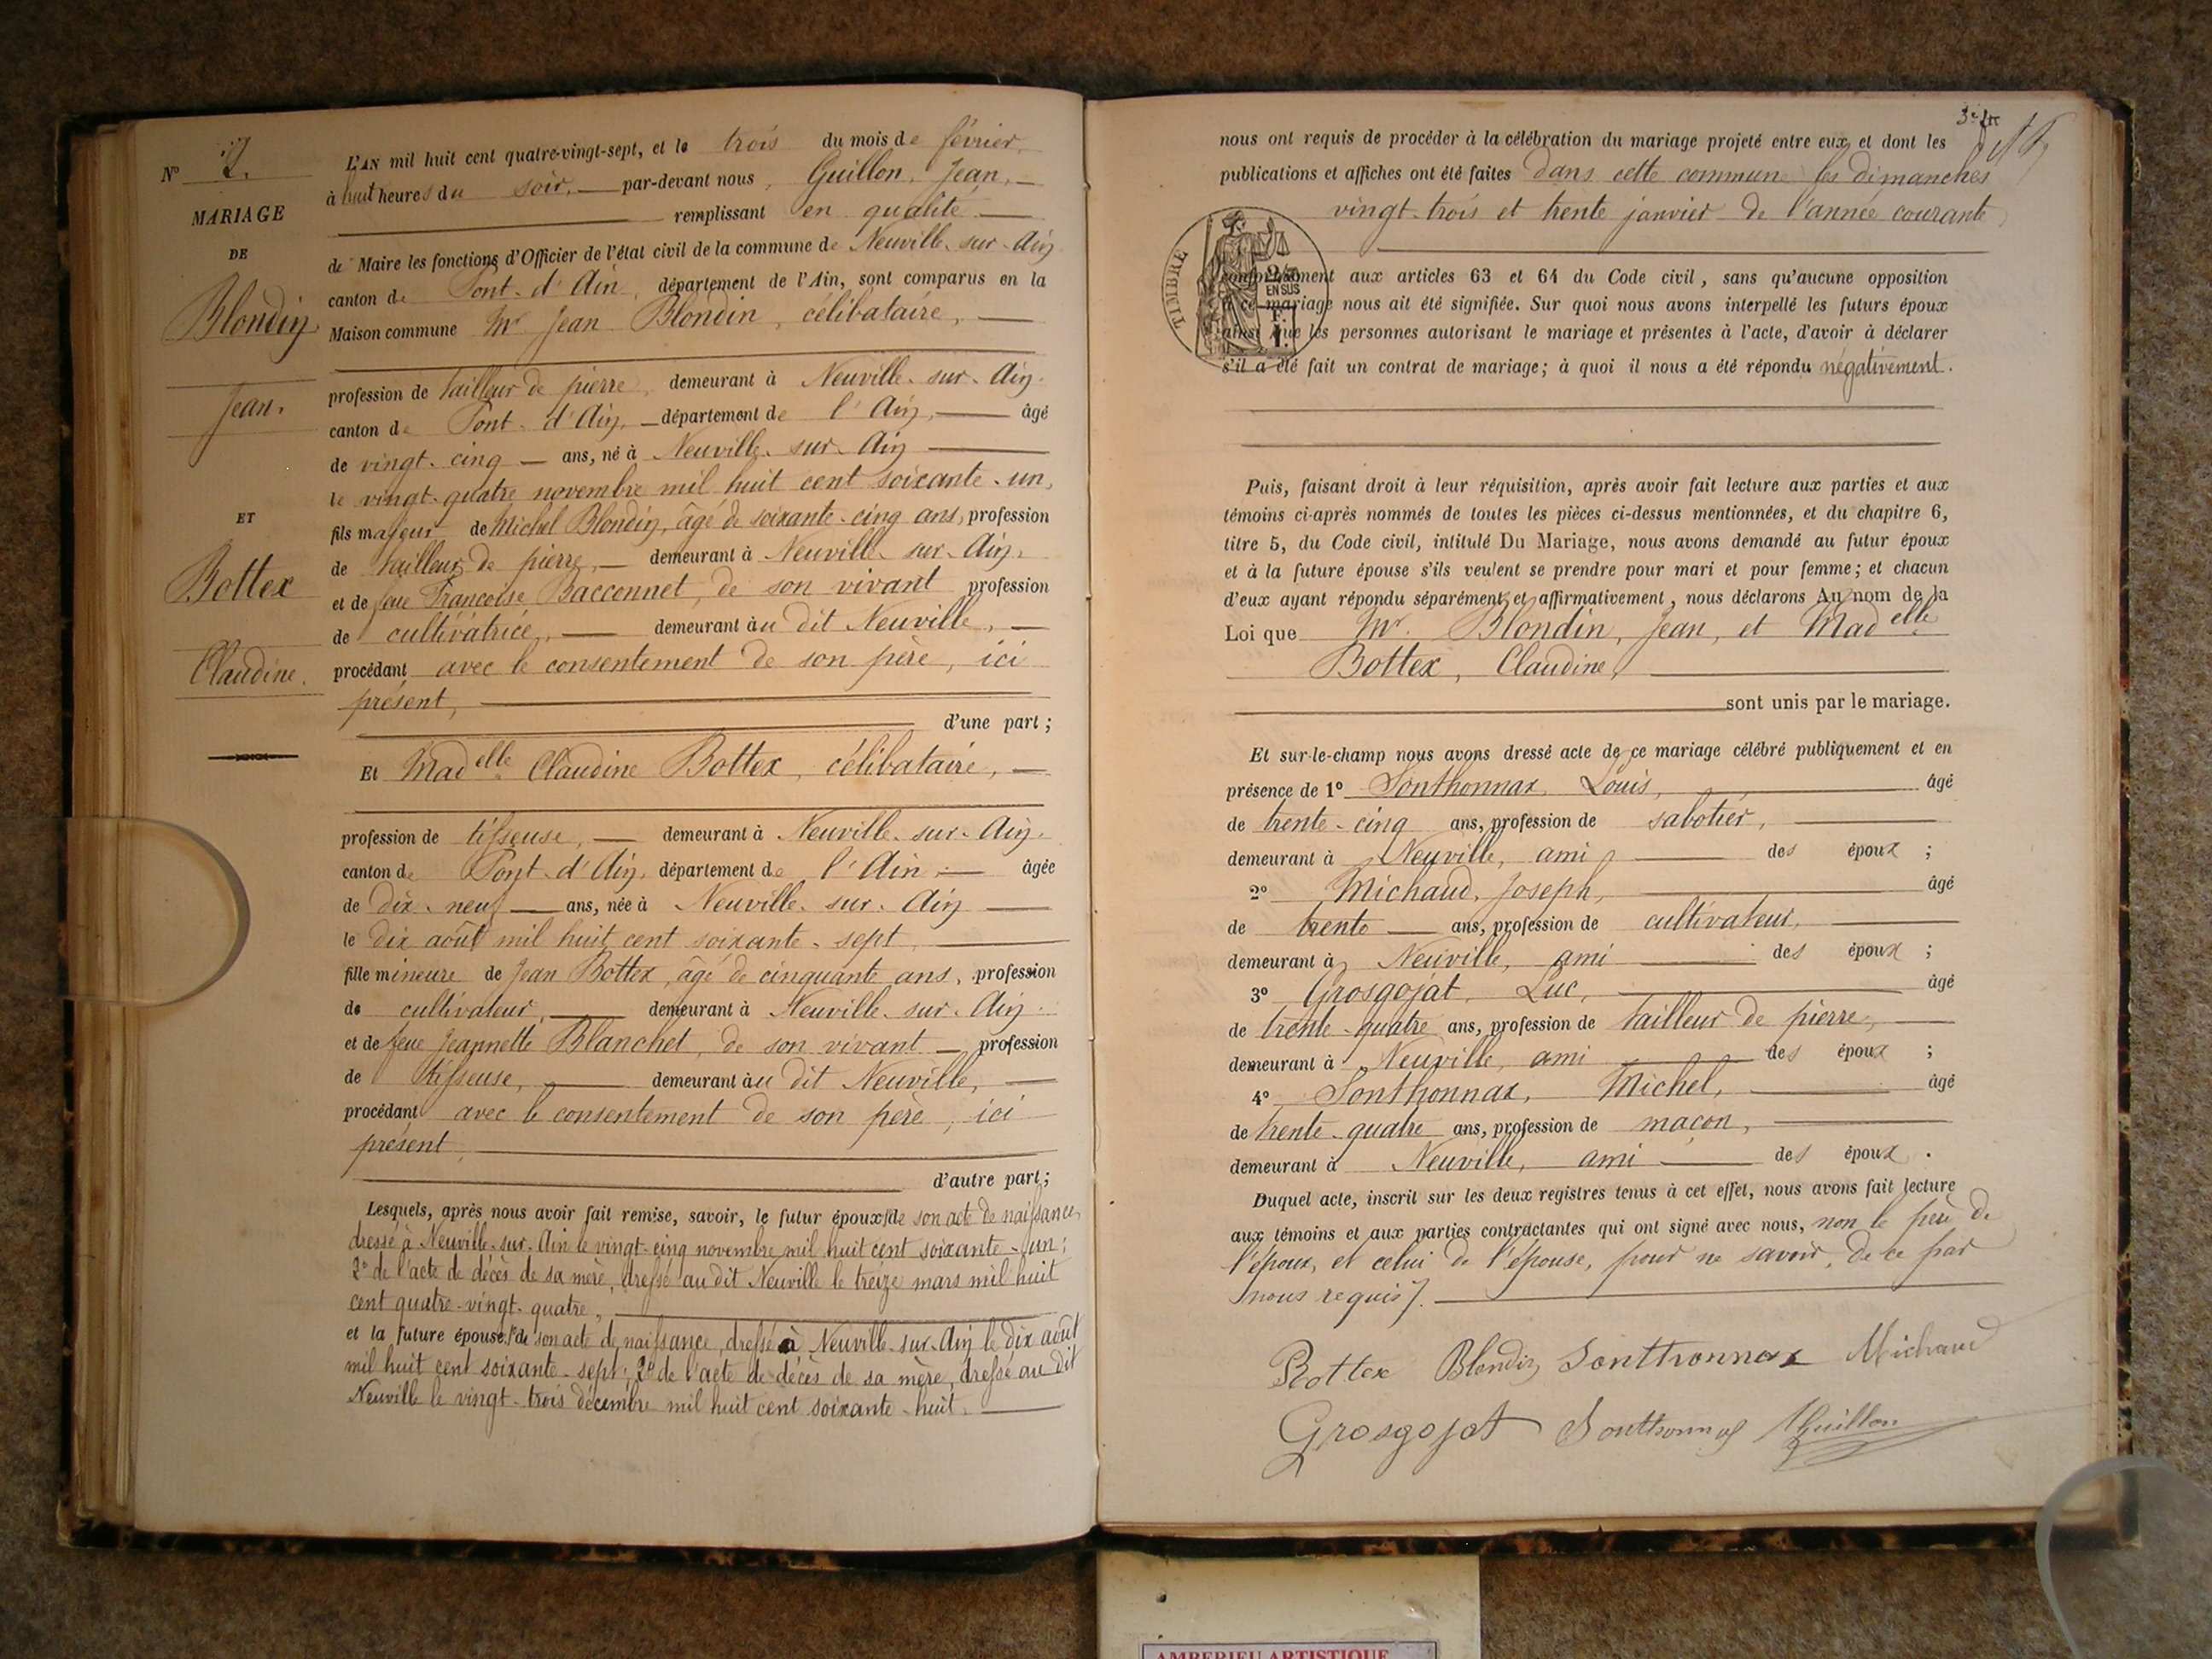 N° 2.
MARIAGE
DE
Blondin
Jean.
ET
Bottex
Claudine.
L'AN mil huit cent quatre-vingt-sept, et le trois du mois de février,
à huit heures du soir, par-devant nous, Guillon, Jean,
remplissant en qualité
de Maire les fonctions d'Officier de l'état civil de la commune de Neuville-sur-Ain
canton de Pont-d'Ain, département de l'Ain, sont comparus en la
Maison commune Mr Jean Blondin, célibataire,
profession de tailleur de pierre, demeurant à Neuville-sur-Ain.
canton de Pont-d'Ain, département de l'Ain, âgé
de vingt-cinq ans, né à Neuville-sur-Ain
le vingt-quatre novembre mil huit cent soixante-un,
fils majeur de Michel Blondin, âgé de soixante-cinq ans, profession
de tailleur de pierre, demeurant à Neuville-sur-Ain,
et de feue Françoise Bacconnet, de son vivant profession
de cultivatrice, demeurant au dit Neuville,
procédant avec le consentement de son père, ici
présent,
d'une part;
Et Madelle Claudine Bottex, célibataire,
profession de tisseuse, demeurant à Neuville-sur-Ain.
canton de Pont-d'Ain, département de l'Ain, âgée
de dix-neuf ans, née à Neuville-sur-Ain
le dix août mil huit cent soixante-sept,
fille mineure de Jean Bottex, âgé de cinquante ans, profession
de cultivateur, demeurant à Neuville-sur-Ain.
et de feue Jeannette Blanchet, de son vivant profession
de tisseuse, demeurant au dit Neuville,
procédant avec le consentement de son père, ici
présent,
d'autre part;
Lesquels, après nous avoir fait remise, savoir, le futur époux, 1° de son acte de naissance,
dressé à Neuville-sur-Ain le vingt-cinq novembre mil huit cent soixante-un;
2° de l'acte de décès de sa mère, dressé au dit Neuville le treize mars mil huit
cent quatre-vingt-quatre,
et la future épouse, 1° de son acte de naissance, dressé à Neuville-sur-Ain le dix août
mil huit cent soixante-sept; 2° de l'acte de décès de sa mère, dressé au dit
Neuville le vingt-trois décembre mil huit cent soixante-huit.
nous ont requis de procéder à la célébration du mariage projeté entre eux, et dont les
publications et affiches ont été faites dans cette commune les dimanches
vingt-trois et trente janvier de l'année courante,
TIMBRE
EN SUS
conformément aux articles 63 et 64 du Code civil, sans qu'aucune opposition
à ce mariage nous ait été signifiée. Sur quoi nous avons interpellé les futurs époux
ainsi que les personnes autorisant le mariage et présentes à l'acte, d'avoir à déclarer
s'il a été fait un contrat de mariage; à quoi il nous a été répondu négativement.
Puis, faisant droit à leur réquisition, après avoir fait lecture aux parties et aux
témoins ci-après nommés de toutes les pièces ci-dessus mentionnées, et du chapitre 6,
titre 5, du Code civil, intitulé Du Mariage, nous avons demandé au futur époux
et à la future épouse s'ils veulent se prendre pour mari et pour femme; et chacun
d'eux ayant répondu séparément et affirmativement, nous déclarons Au nom de la
Loi que Mr. Blondin, Jean, et Madelle
Bottex, Claudine,
sont unis par le mariage.
Et sur-le-champ nous avons dressé acte de ce mariage célébré publiquement et en
présence de 1° Sonthonnax, Louis, âgé
de trente-cinq ans, profession de sabotier,
demeurant à Neuville, ami des époux;
2° Michaud, Joseph, âgé
de trente ans, profession de cultivateur,
demeurant à Neuville, ami des époux;
3° Grosgojat, Luc, âgé
de trente-quatre ans, profession de tailleur de pierre,
demeurant à Neuville, ami des époux;
4° Sonthonnax, Michel, âgé
de trente-quatre ans, profession de maçon,
demeurant à Neuville, ami des époux.
Duquel acte, inscrit sur les deux registres tenus à cet effet, nous avons fait lecture
aux témoins et aux parties contractantes qui ont signé avec nous, non le père de
l'époux, et celui de l'épouse, pour ne savoir, de ce par
nous requis.
Bottex Blondin Sonthonnax Michaud
Grosgojat Sonthonnax Guillon
AMBERIEU ARTISTIQUE